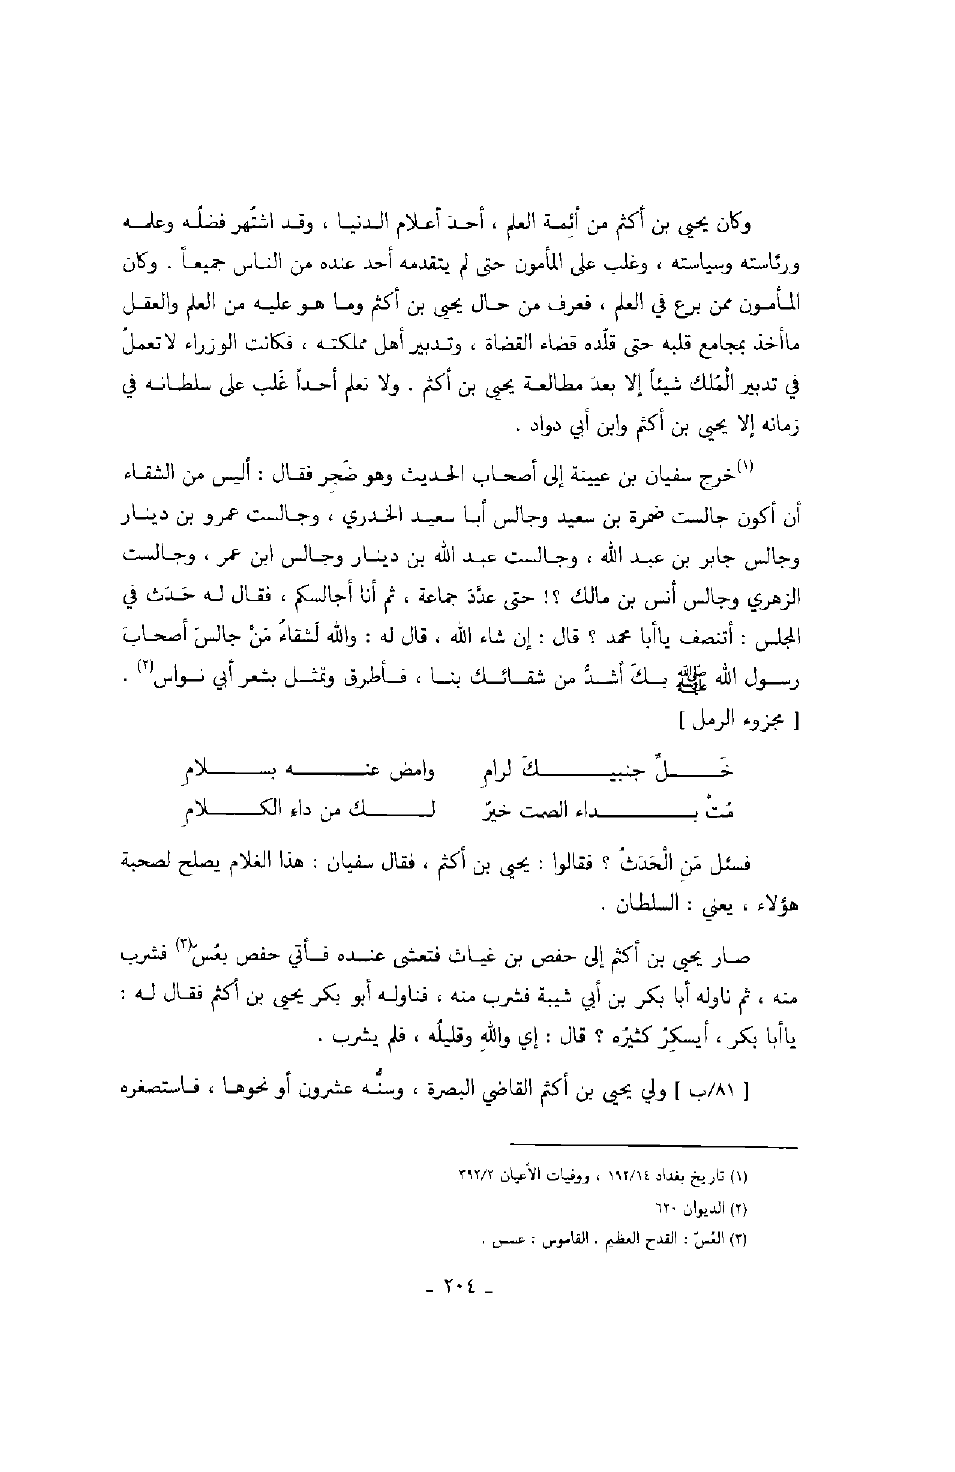 وكان يحيى بن أكثم من أئمة العلم ، أحدَ أعلام الدنيا ، وقد اشتُهر فضلُه وعلمه
ورئاسته وسياسته ، وغلب على المأمون حتى لم يتقدمه أحد عنده من الناس جميعاً . وكان
المأمون ممن برع في العلم ، فعرف من حال يحيى بن أكثم وما هو عليه من العلم والعقل
ماأخذ بمجامع قلبه حتى قلّده قضاء القضاة ، وتدبير أهل مملكته ، فكانت الوزراء لاتعملُ
في تدبير الْمُلك شيئاً إلا بعدَ مطالعة يحيى بن أكثم . ولا نعلم أحداً غَلب على سلطانه في
زمانه إلا يحيى بن أكثم وابن أبي دواد .
(١)خرج سفيان بن عيينة إلى أصحاب الحديث وهو ضَجِر فقال : أليس من الشقاء
أن أكون جالست ضمرة بن سعيد وجالس أبا سعيد الخدري ، وجالست عمرو بن دينار
وجالس جابر بن عبد الله ، وجالست عبد الله بن دينار وجالس ابن عمر ، وجالست
الزهري وجالس أنس بن مالك ؟! حتى عدَّدَ جماعة ، ثم أنا أجالسكم ، فقال له حَدَث في
المجلس : أتنصف ياأبا محمد ؟ قال : إن شاء الله ، قال له : والله لَشقاءُ مَنْ جالسَ أصحابَ
رسول الله ﷺ بكَ أشدُّ من شقائك بنا ، فأطرق وتمثل بشعر أبي نواس(٢) .
[ مجزوء الرمل ]
خَلِّ جنبيكَ لرامِ وامضِ عنه بسلامِ
مُتْ بداء الصمت خيرٌ لك من داء الكلامِ
فسئل مَنِ الْحَدَثُ ؟ فقالوا : يحيى بن أكثم ، فقال سفيان : هذا الغلام يصلح لصحبة
هؤلاء ، يعني : السلطان .
صار يحيى بن أكثم إلى حفص بن غياث فتعشى عنده فأتي حفص بعُسّ(٣) فشرب
منه ، ثم ناوله أبا بكر بن أبي شيبة فشرب منه ، فناوله أبو بكر يحيى بن أكثم فقال له :
ياأبا بكر ، أيسكرُ كثيرُه ؟ قال : إي واللهِ وقليلُه ، فلم يشرب .
[ ٨١/ب ] ولي يحيى بن أكثم القاضي البصرة ، وسنُّه عشرون أو نحوها ، فاستصغره
(١) تاريخ بغداد ١٩٢/١٤ ، ووفيات الأعيان ٣٩٢/٢
(٢) الديوان ٦٢٠
(٣) العُسّ : القدح العظيم . القاموس : عسس .
- ٢٠٤ -